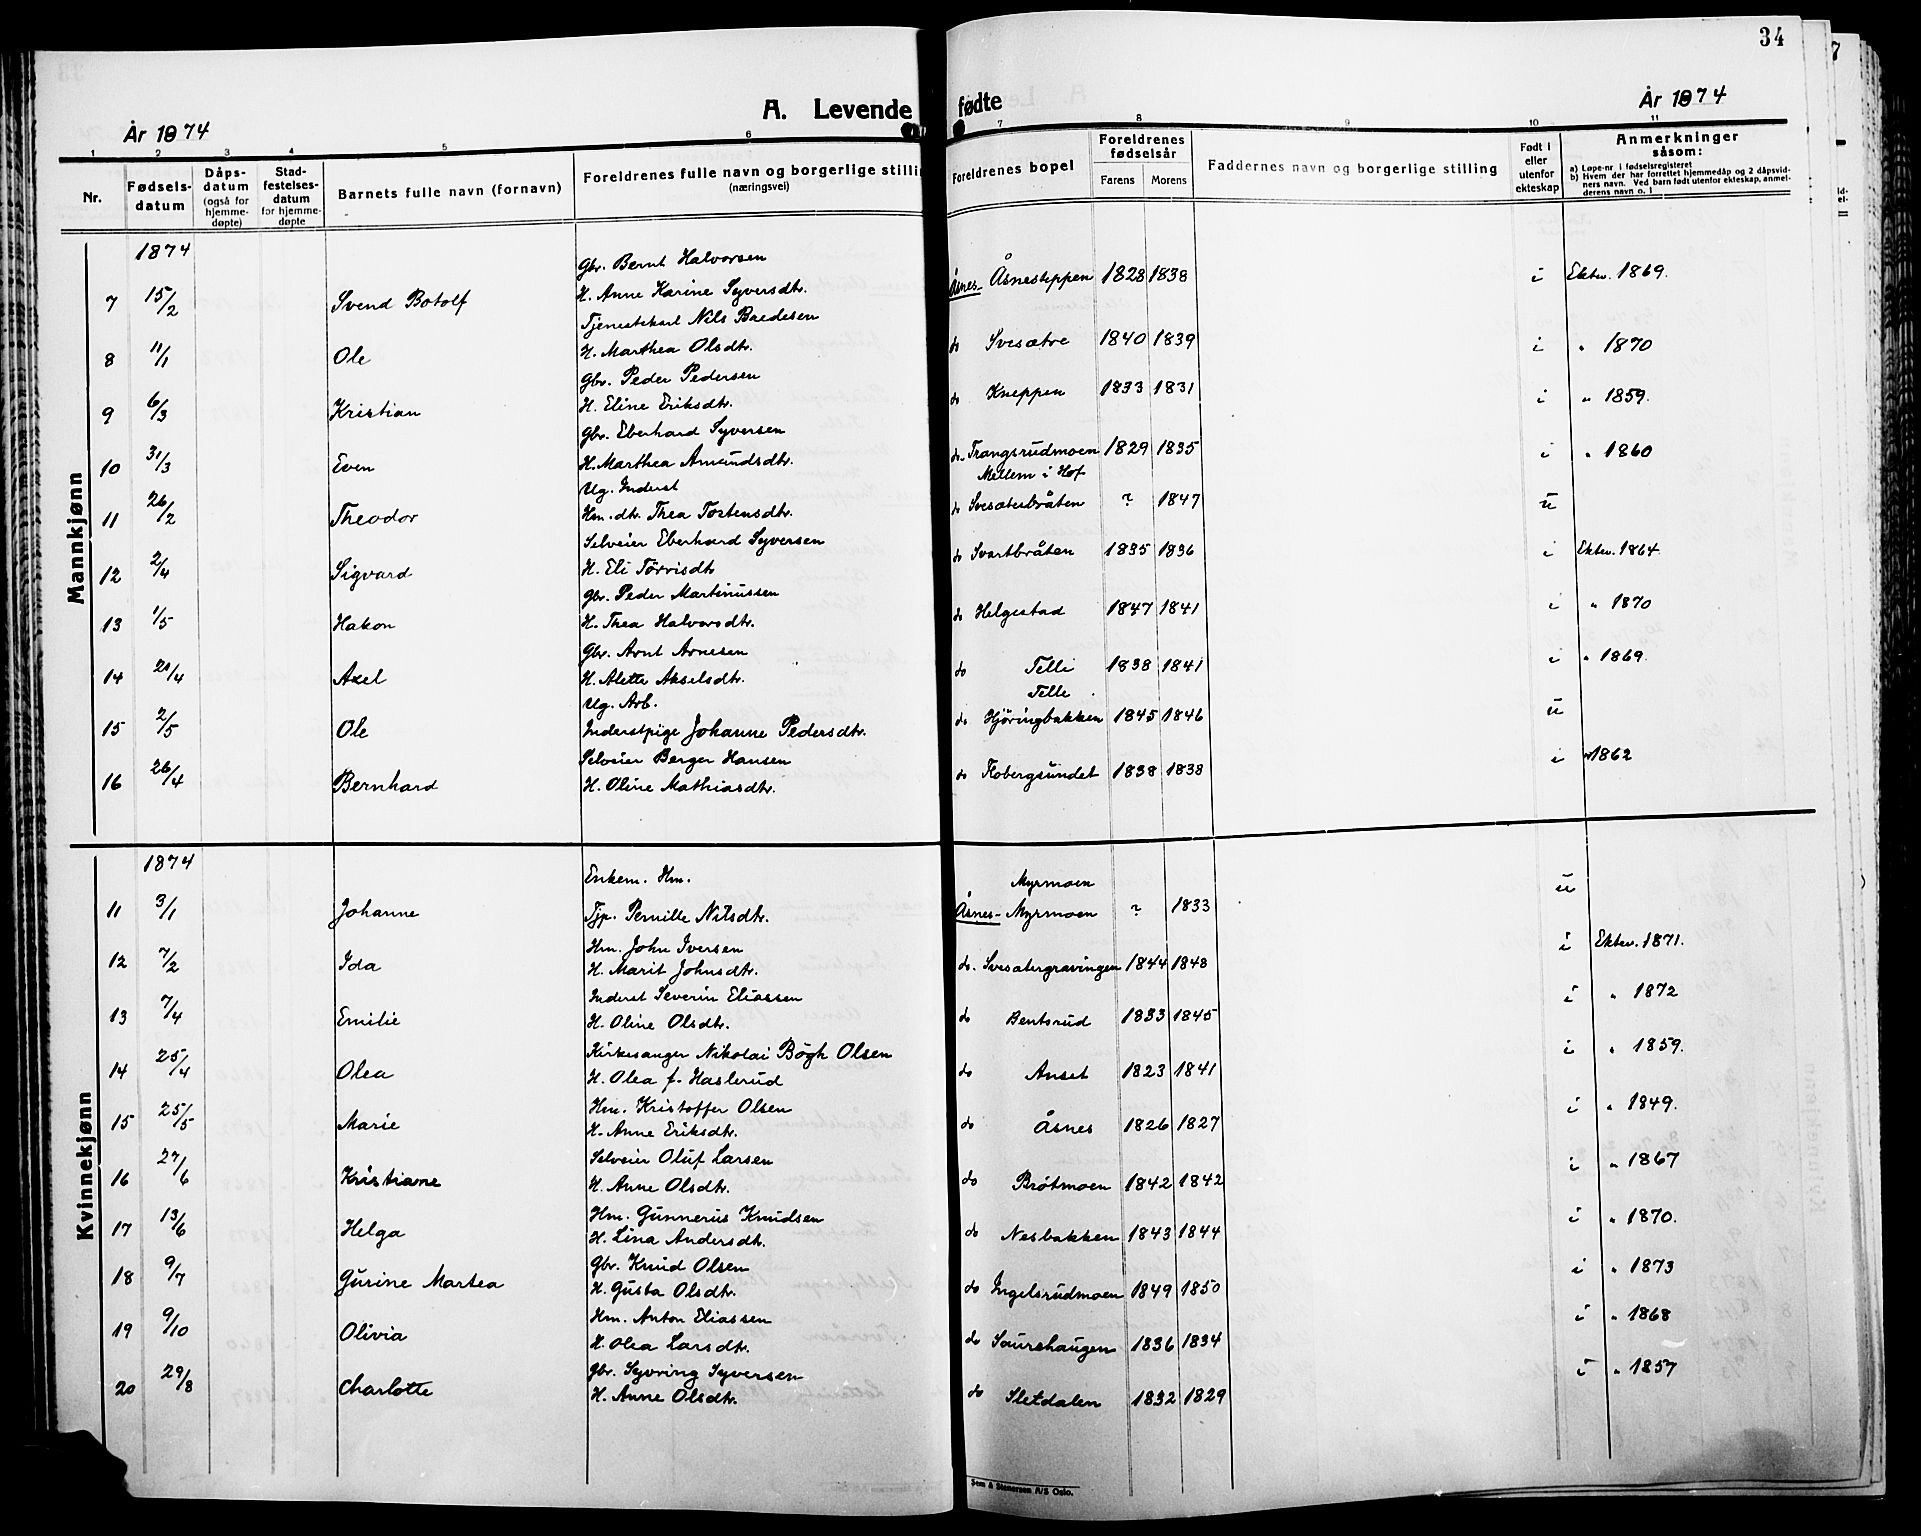 34
År 1874
A. Levende fødte
År 1874
1 2 3 4 5 6 7 8 9 10 11
Nr.
Fødsels-
datum
Dåps-
datum
(også for
hjemme-
døpte)
Stad-
festelses-
datum
for hjemme-
døpte
Barnets fulle navn (fornavn)
Foreldrenes fulle navn og borgerlige stilling
(næringsvei)
Foreldrenes bopel
Foreldrenes
fødselsår
Farens Morens
Faddernes navn og borgerlige stilling
Født i
eller
utenfor
ekteskap
Anmerkninger
såsom:
a) Løpe-nr. i fødselsregisteret
b) Hvem der har forrettet hjemmedåp og 2 dåpsvid-
ners navn. Ved barn født utenfor ekteskap, anmel-
derens navn o. l.
Mannkjønn
1874
Gbr. Bernt Halvorsen
7 15/2 Svend Botolf H. Anne Karine Syversdtr. Åsnes- Åsnesteppen 1828 1838 i Ektev. 1869.
Tjenestekarl Nils Baedesen
8 11/1 Ole H. Marthea Olsdtr. do Svesætre 1840 1839 i " 1870
Gbr. Peder Pedersen
9 6/3 Kristian H. Eline Eriksdtr. do Kneppen 1833 1831 i " 1859.
Gbr. Eberhard Syversen
10 31/3 Even H. Marthea Amundsdtr. do. Trangsrudmoen 1829 1835 i " 1860
Ug. Inderst Mellem i Hof
11 26/2 Theodor Hm. dtr. Thea Tostensdtr. do Svesæterbråten ? 1847 u
Selveier Eberhard Syversen
12 2/4 Sigvard H. Eli Törrisdtr do Svartbråten 1835 1836 i Ektev. 1864.
Gbr. Peder Martinussen
13 1/5 Hakon H. Thea Halvorsdtr. do Helgestad 1847 1841 i " 1870
Gbr. Arnt Arnesen
14 21/4 Axel H. Alette Akselsdtr. do Telle 1838 1841 i " 1869.
Ug. Arb. Telle
15 2/5 Ole Inderstpige Johanne Pedersdtr. do Hjöringbakken 1845 1846 u
Selveier Berger Hansen
16 26/4 Bernhard H. Oline Mathiasdtr. do Flobergsundet 1838 1838 i " 1862
Kvinnekjønn
1874
Enkem. Hm. Myrmoen
11 3/1 Johanne Tjp. Pernille Nilsdtr. Åsnes- Myrmoen ? 1833 u
Hm. John Iversen
12 7/2 Ida H. Marit Johnsdtr. do. Svesætergravingen 1844 1848 i Ektev. 1871.
Inderst Severin Eliassen
13 7/4 Emilie H. Oline Olsdtr. do Bentsrud 1833 1845 i " 1872
Kirkesanger Nikolai Bögh Olsen
14 25/4 Olea H. Olea f. Haslerud do Anset 1823 1841 i " 1859.
Hm. Kristoffer Olsen
15 25/5 Marie H. Anne Eriksdtr. do Åsnes 1826 1827 i " 1849.
Selveier Oluf Larsen
16 27/6 Kristiane H. Anne Olsdtr. do Bråtmoen 1842 1842 i " 1867
Hm. Gunnerus Knudsen
17 13/6 Helga H. Lina Andersdtr. do Nesbakken 1843 1844 i " 1870.
Gbr. Knud Olsen
18 9/7 Gurine Martea H. Gusta Olsdtr. do Ingelsrudmoen 1849 1850 i " 1873
Hm. Anton Eliassen
19 9/10 Olivia H. Olea Larsdtr. do Saurehaugen 1836 1834 i " 1868
Gbr. Syvring Syversen
20 29/8 Charlotte H. Anne Olsdtr. do Sletdalen 1832 1829 i " 1857
Sem & Stenersen A/S Oslo.